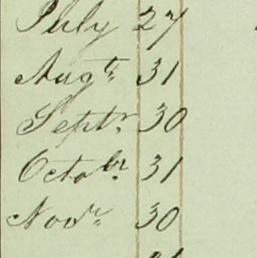 July 27
Augt. 31
Septr. 30
Octobr. 31
Novr. 30